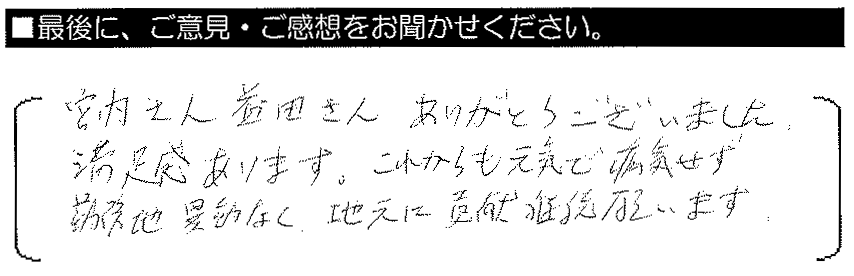 ■最後に、ご意見・ご感想をお聞かせください。
宮内さん 益田さん ありがとうございました。
満足感あります。これからも元気で病気せず
勤務地異動なく、地元に貢献継続願います。